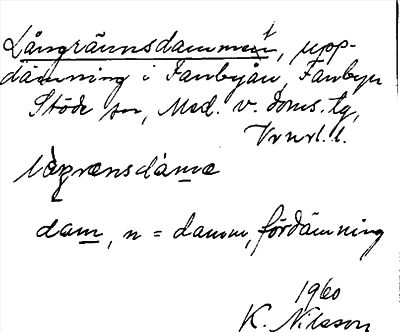 Långrännsdammen, upp-
dämning i Fanbyån, Fanbyn
Stöde sn, Med. v. doms. tg,
Vnrl. l.
dam, n = damm, fördämning
1960
K. Nilsson